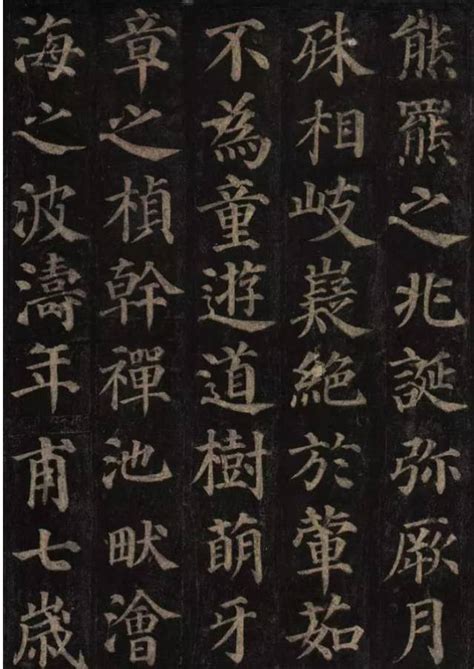 熊羆之兆誕弥厥月
殊相岐嶷絶於葷茹
不為童遊道樹萌牙
章之楨幹禪池畎澮
海之波濤年甫七歲